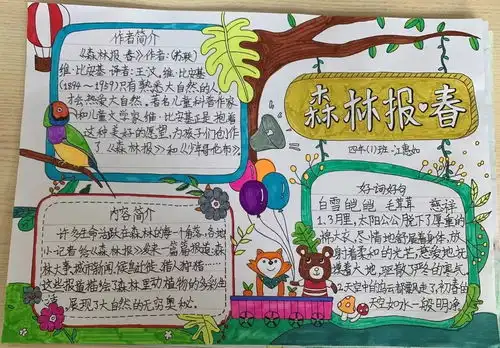 森林报·春
四年(1)班·江惠如
作者简介
《森林报·春》作者:(苏联)
维·比安基 译者:王汶,维·比安基
(1894-1959)只有熟爱大自然的人,
才会热爱大自然,著名儿童科普作家
和儿童文学家维·比安基正是抱着
这种美好的愿望,为孩子们创作
了《森林报》和《少年哥伦布》
内容简介
许多生命活跃在森林的每一个角落,各地
小记者给《森林报》发来一篇篇报道:森
林大事,城市新闻,候鸟迁徙,猎人狩猎……
这些报道描绘了森林里动植物的多彩生
活,展现了大自然的无穷奥秘。
好词好句
白雪皑皑 毛茸茸 慈祥
1.3月里,太阳公公脱下了厚重的
棉大衣,尽情地舒展着身体,放
射着柔和的光芒,慈爱地光
抚摸着大地,驱散了严冬的寒气
2.天空中的乌云都飘走了,初春的
天空如水一般明净